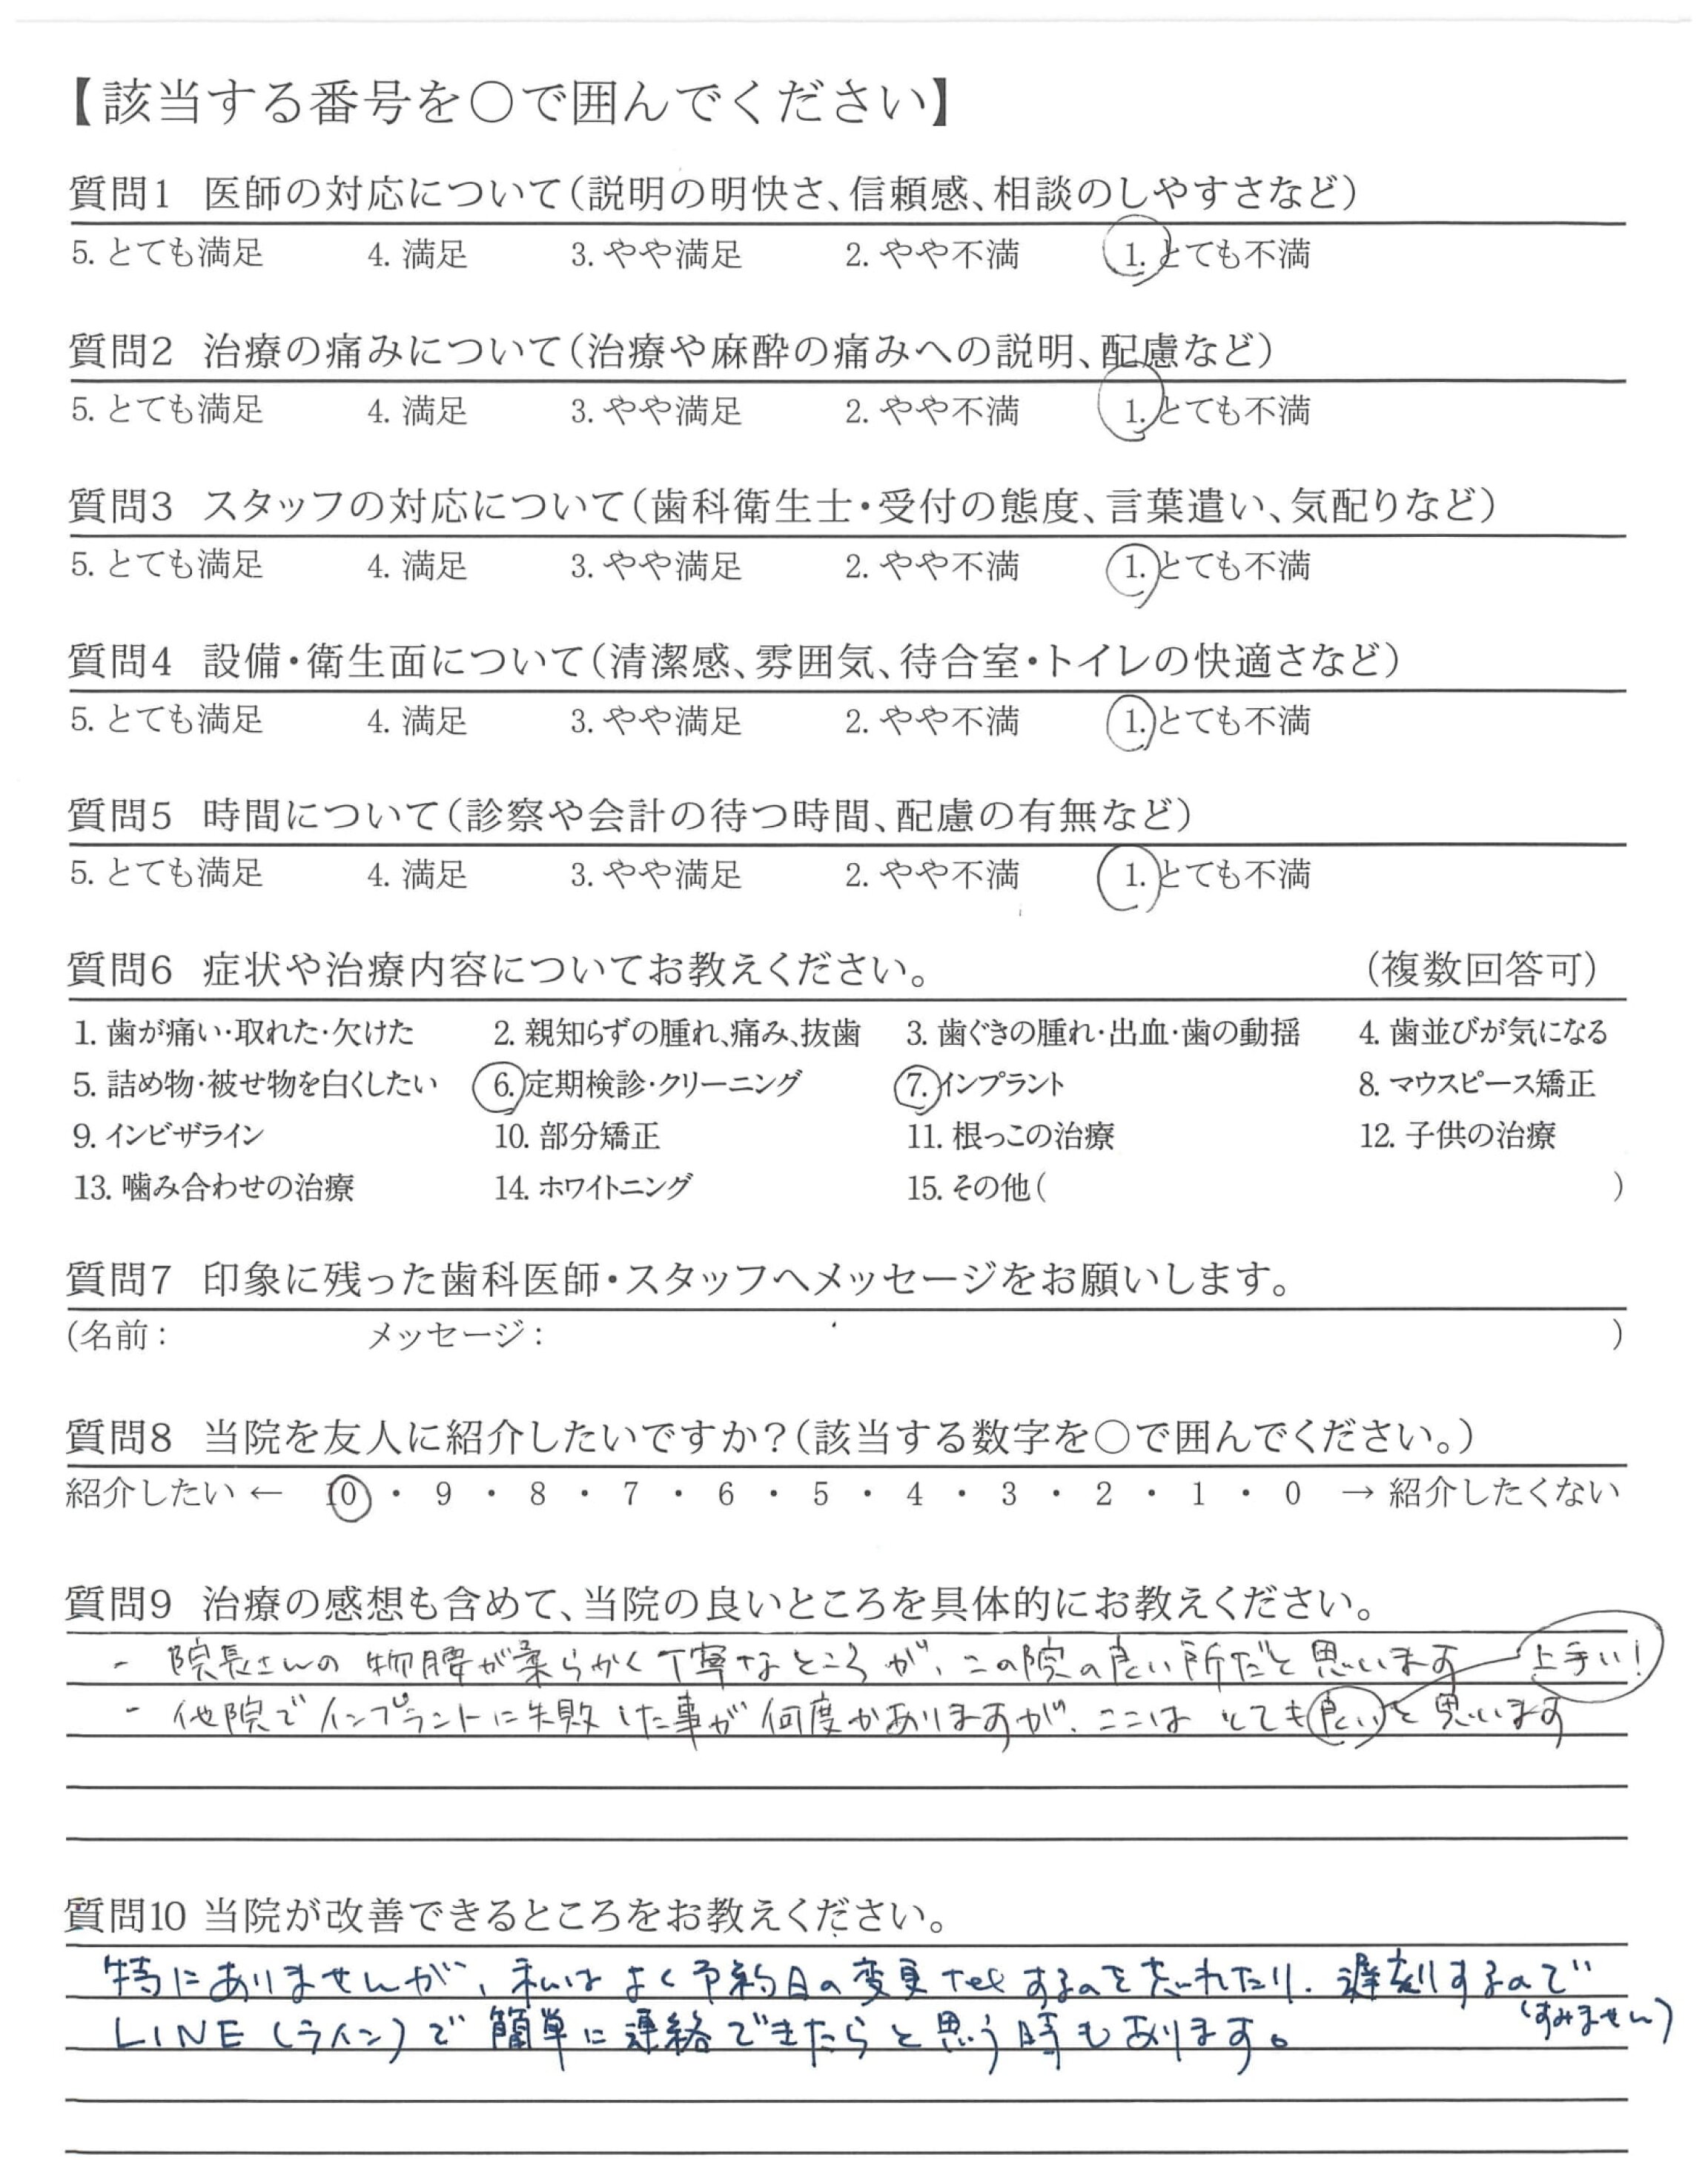 【該当する番号を○で囲んでください】
質問1 医師の対応について(説明の明快さ、信頼感、相談のしやすさなど)
5. とても満足 4. 満足 3. やや満足 2. やや不満 1. とても不満
質問2 治療の痛みについて(治療や麻酔の痛みへの説明、配慮など)
5. とても満足 4. 満足 3. やや満足 2. やや不満 1. とても不満
質問3 スタッフの対応について(歯科衛生士・受付の態度、言葉遣い、気配りなど)
5. とても満足 4. 満足 3. やや満足 2. やや不満 1. とても不満
質問4 設備・衛生面について(清潔感、雰囲気、待合室・トイレの快適さなど)
5. とても満足 4. 満足 3. やや満足 2. やや不満 1. とても不満
質問5 時間について(診察や会計の待つ時間、配慮の有無など)
5. とても満足 4. 満足 3. やや満足 2. やや不満 1. とても不満
質問6 症状や治療内容についてお教えください。 (複数回答可)
1. 歯が痛い・取れた・欠けた 2. 親知らずの腫れ、痛み、抜歯 3. 歯ぐきの腫れ・出血・歯の動揺 4. 歯並びが気になる
5. 詰め物・被せ物を白くしたい 6. 定期検診・クリーニング 7. インプラント 8. マウスピース矯正
9. インビザライン 10. 部分矯正 11. 根っこの治療 12. 子供の治療
13. 噛み合わせの治療 14. ホワイトニング 15. その他( )
質問7 印象に残った歯科医師・スタッフへメッセージをお願いします。
(名前: メッセージ: )
質問8 当院を友人に紹介したいですか?(該当する数字を○で囲んでください。)
紹介したい ← 10 ・ 9 ・ 8 ・ 7 ・ 6 ・ 5 ・ 4 ・ 3 ・ 2 ・ 1 ・ 0 → 紹介したくない
質問9 治療の感想も含めて、当院の良いところを具体的にお教えください。
- 院長さんの物腰が柔らかく丁寧なところが、この院の良い所だと思います 上手い!
- 他院でインプラントに失敗した事が何度かありますが、ここはとても良いと思います
質問10 当院が改善できるところをお教えください。
特にありませんが、私はよく予約日の変更telするのを忘れたり、遅刻するので
(すみません)
LINE(ライン)で簡単に連絡できたらと思う時もあります。